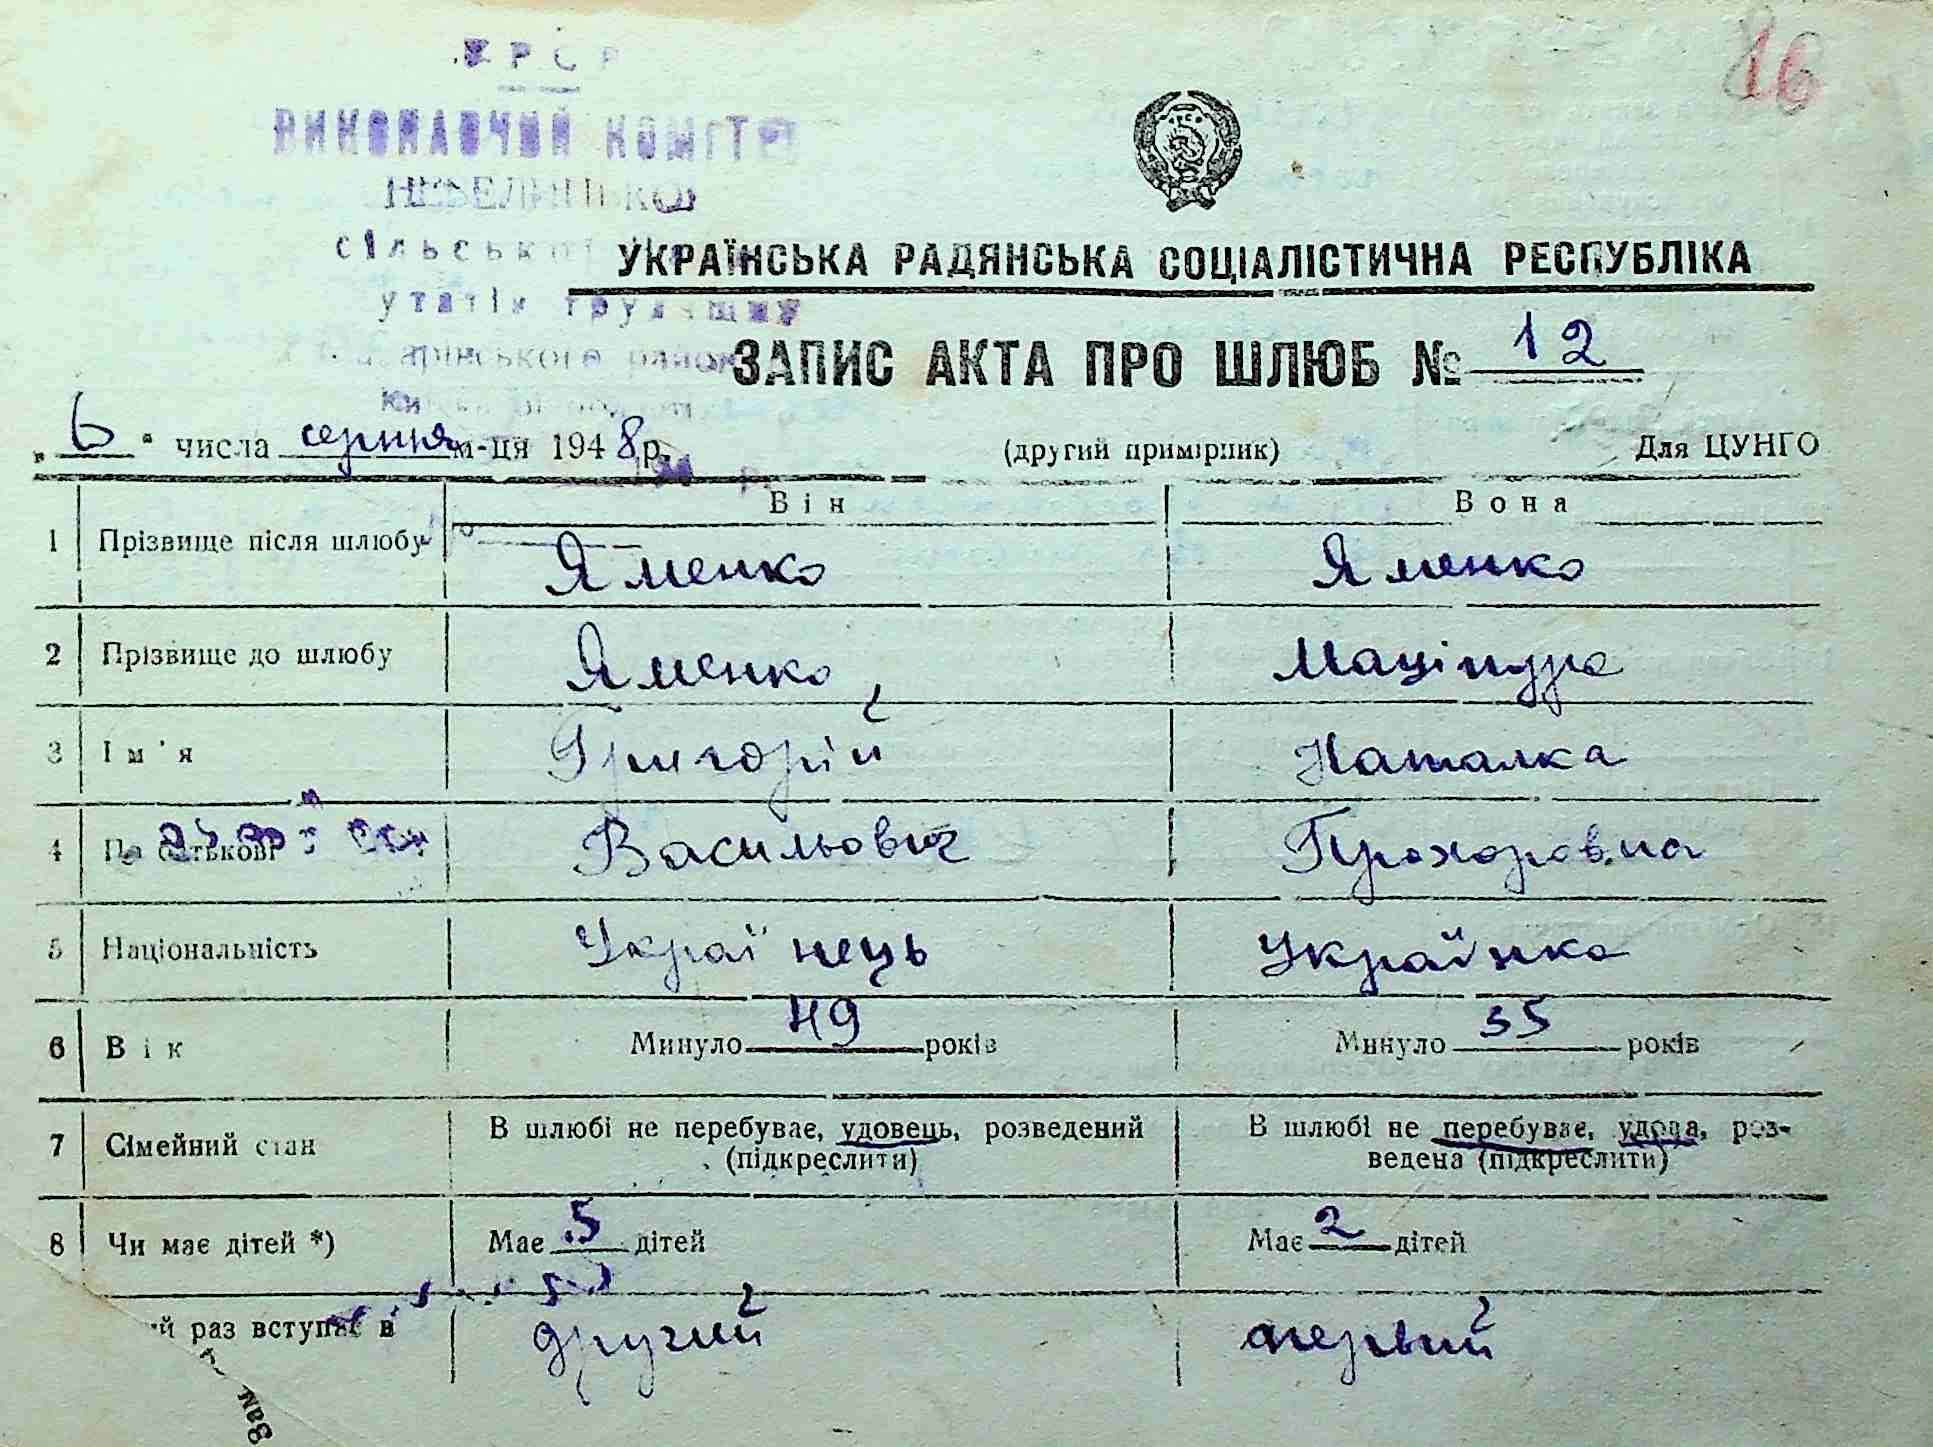 16
УРСР
ВИКОНАВЧИЙ КОМІТЕТ
сільської
УКРАЇНСЬКА РАДЯНСЬКА СОЦІАЛІСТИЧНА РЕСПУБЛІКА
ЗАПИС АКТА ПРО ШЛЮБ № 12
„6“ числа серпня м-ця 1948 р.
(другий примірник) Для ЦУНГО
Він Вона
1 Прізвище після шлюбу Яменко Яменко
2 Прізвище до шлюбу Яменко Маціпура
3 Ім'я Григорій Наталка
4 По батькові Васильович Прохоровна
5 Національність Українець Українка
6 Вік Минуло 49 років Минуло 35 років
7 Сімейний стан В шлюбі не перебуває, удовець, розведений (підкреслити) В шлюбі не перебуває, удова, роз-
ведена (підкреслити)
8 Чи має дітей *) Має 5 дітей Має 2 дітей
ий раз вступає в другий первий
Зам